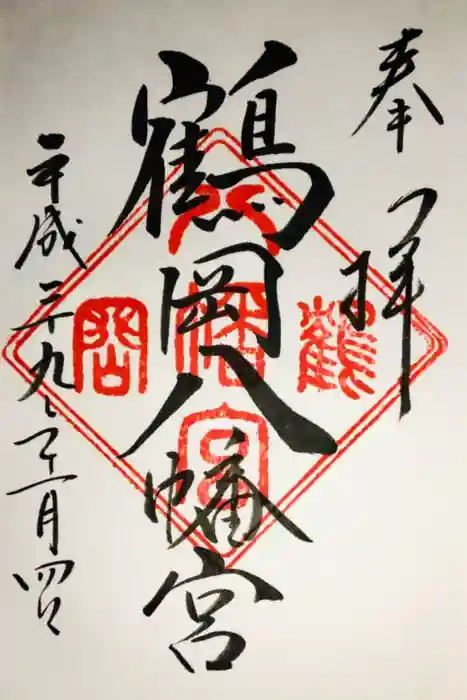 奉拝
鶴岡八幡宮
平成二十九年十一月四日
鶴
岡
八幡宮